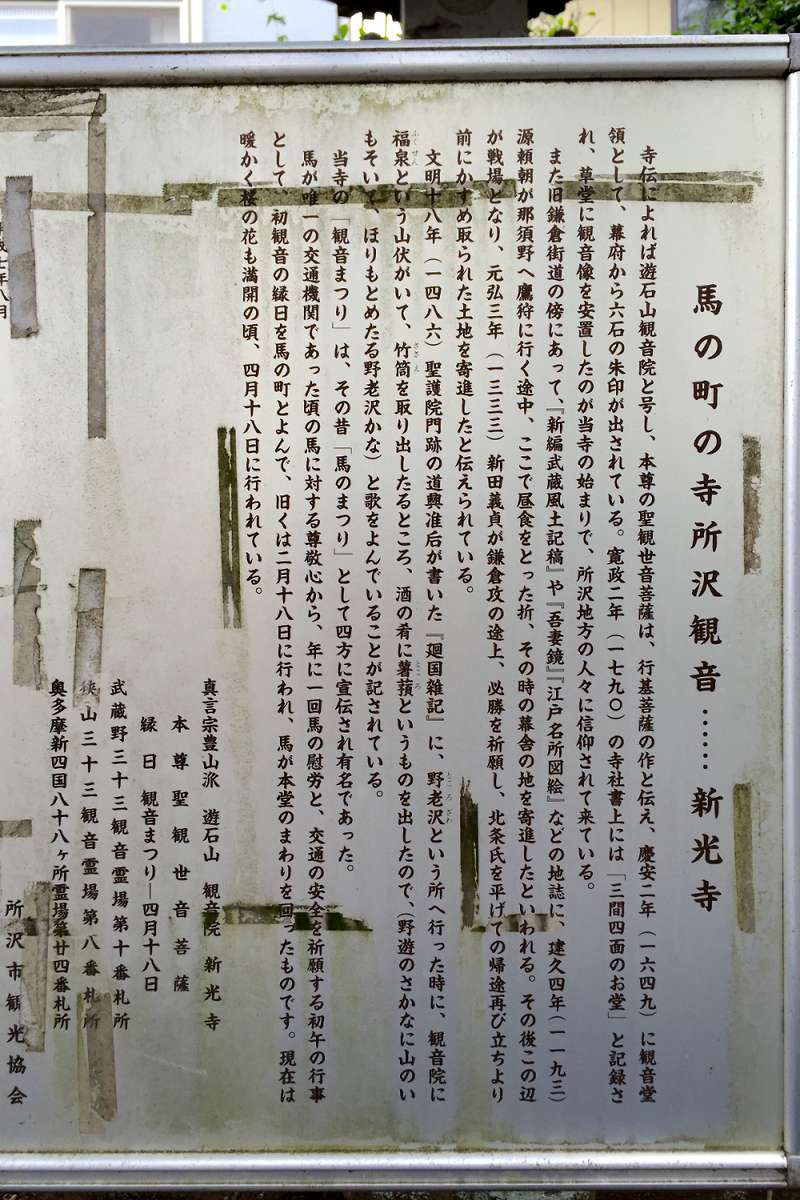 馬の町の寺所沢観音……新光寺
寺伝によれば遊石山観音院と号し、本尊の聖観世音菩薩は、行基菩薩の作と伝え、慶安二年（一六四九）に観音堂
領として、幕府から六石の朱印が出されている。寛政二年（一七九〇）の寺社書上には「三間四面のお堂」と記録さ
れ、草堂に観音像を安置したのが当寺の始まりで、所沢地方の人々に信仰されて来ている。
また旧鎌倉街道の傍にあって、『新編武蔵風土記稿』や『吾妻鏡』『江戸名所図絵』などの地誌に、建久四年（一一九三）
源頼朝が那須野へ鷹狩に行く途中、ここで昼食をとった折、その時の幕舎の地を寄進したといわれる。その後この辺
が戦場となり、元弘三年（一三三三）新田義貞が鎌倉攻の途上、必勝を祈願し、北条氏を平げての帰途再び立ちより
前にかすめ取られた土地を寄進したと伝えられている。
文明十八年（一四八六）聖護院門跡の道興准后が書いた『廻国雑記』に、野老沢という所へ行った時に、観音院に
福泉という山伏がいて、竹筒を取り出したるところ、酒の肴に薯蕷というものを出したので、（野遊のさかなに山のい
もそいて、ほりもとめたる野老沢かな）と歌をよんでいることが記されている。
当寺の「観音まつり」は、その昔「馬のまつり」として四方に宣伝され有名であった。
馬が唯一の交通機関であった頃の馬に対する尊敬心から、年に一回馬の慰労と、交通の安全を祈願する初午の行事
として、初観音の縁日を馬の町とよんで、旧くは二月十八日に行われ、馬が本堂のまわりを回ったものです。現在は
暖かく桜の花も満開の頃、四月十八日に行われている。
真言宗豊山派 遊石山 観音院 新光寺
本尊聖観世音菩薩
縁日 観音まつり―四月十八日
武蔵野三十三観音霊場第十番札所
狭山三十三観音霊場第八番札所
奥多摩新四国八十八ヶ所霊場第廿四番札所
所沢市観光協会
七年八月